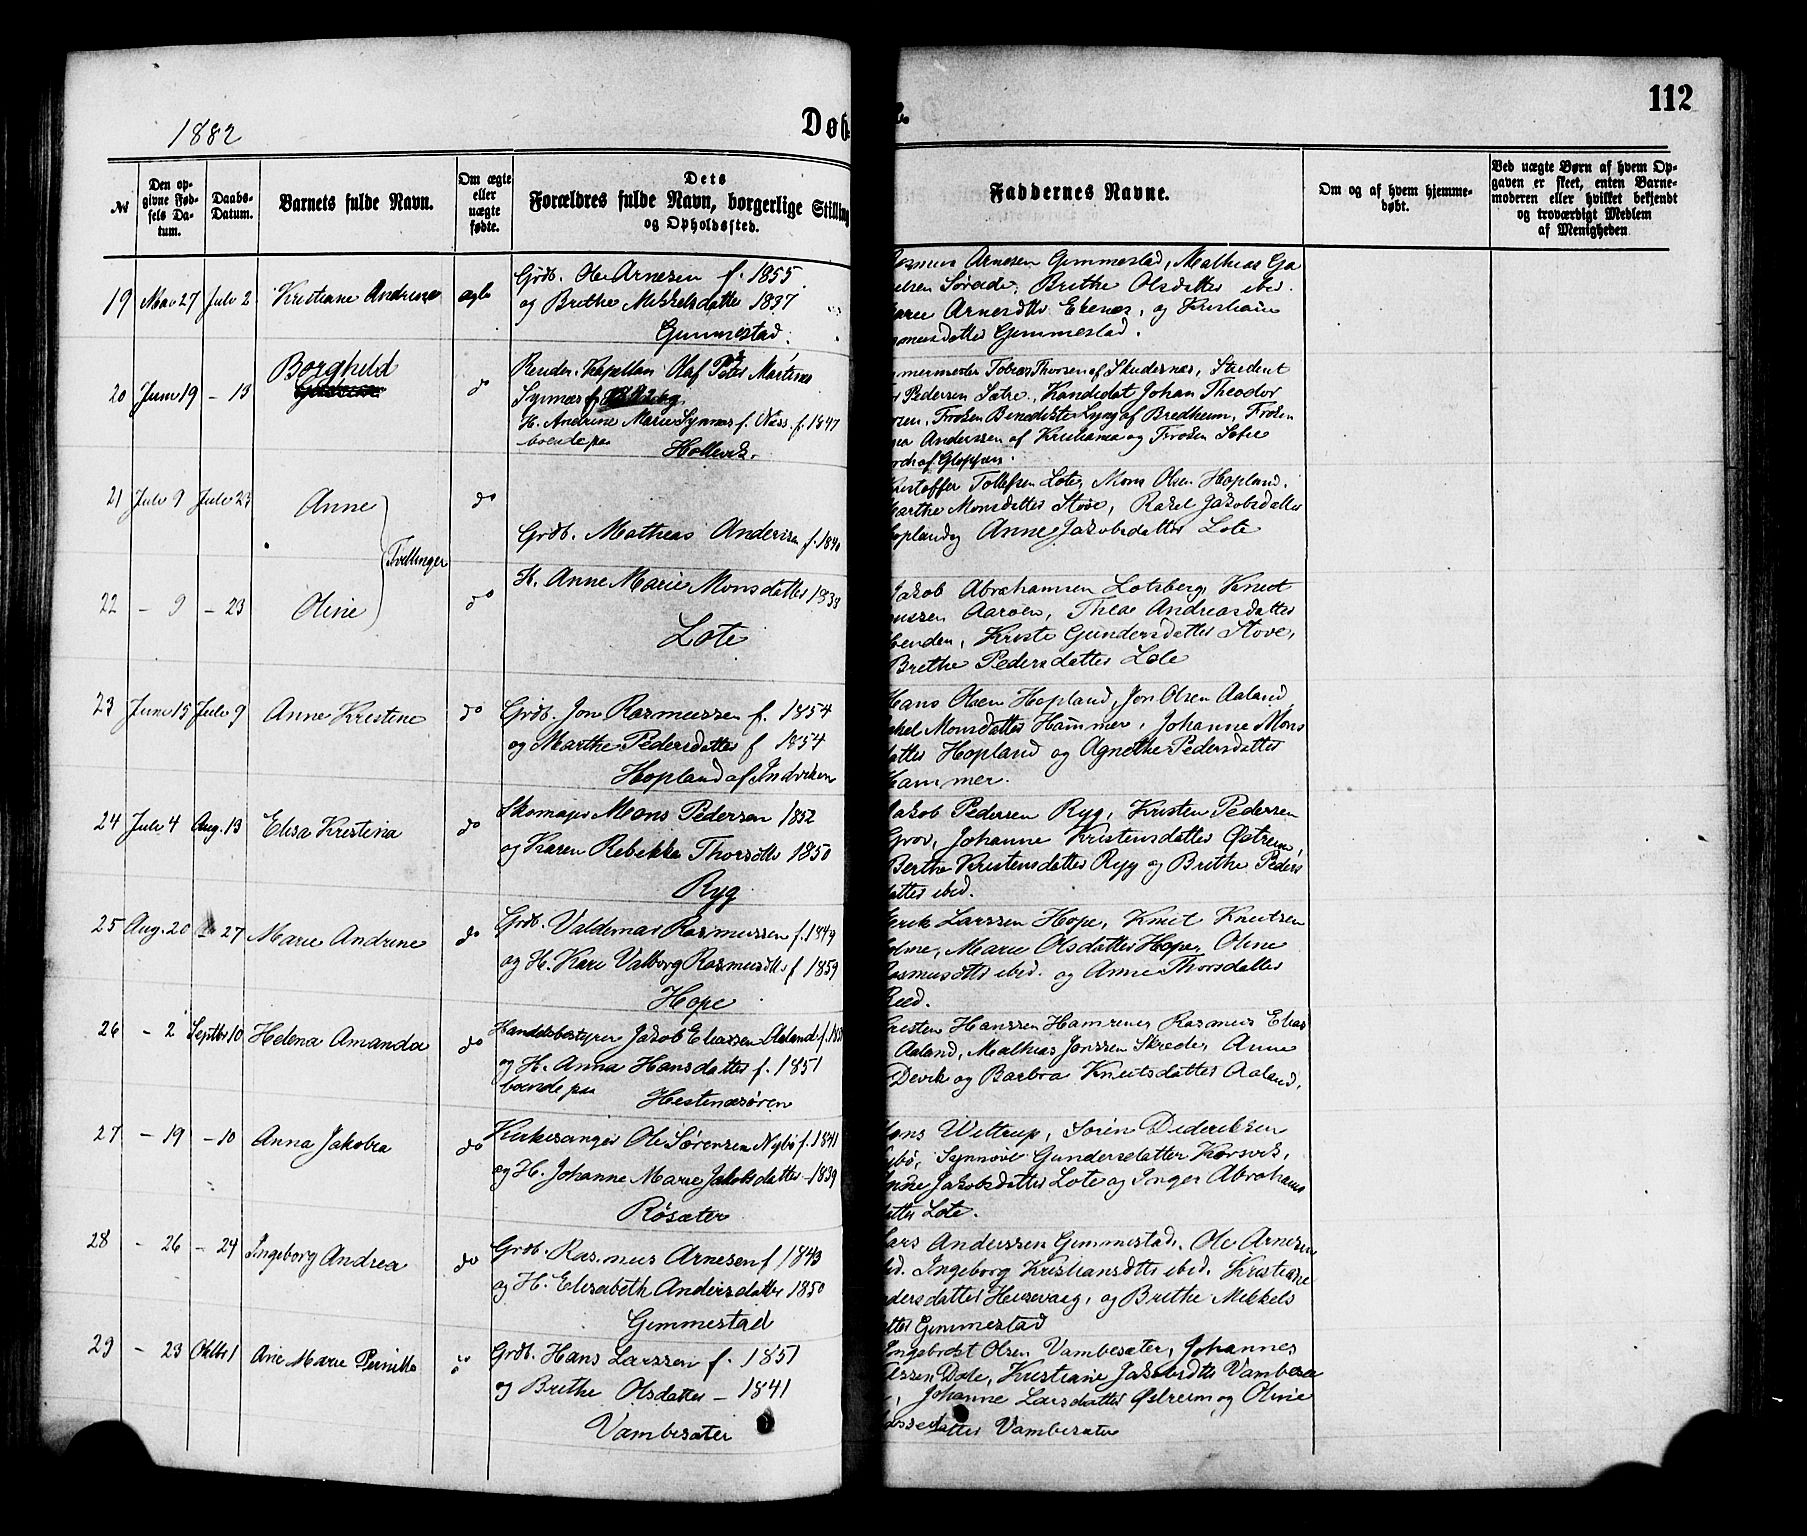 1882
Døb
112
№
Den opgivne Fødsels Datum.
Daabs-Datum.
Barnets fulde Navn.
Om ægte eller uægte fødte.
Dets Forældres fulde Navn, borgerlige Stilling og Opholdssted.
Faddernes Navne.
Om og af hvem hjemmedøbt.
Ved uægte Børn af hvem Opgaven er skeet, enten Barnemoderen eller hvilket bekjendt og troværdigt Medlem af Menigheden
19 Mai 27 Juli 2 Kristiane Andrine ægte
Grdb. Ole Arnesen f. 1855
og Brithe Mikkelsdatter 1837
Gimmestad.
Arnesen Gimmestad, Mathias
Brithe Olsdatter ibid.
Arnesdtr. Ekenæs, og Kristiane
Gimmestad.
20 Juni 19 – 13 Borghild do
Resider. Kapellan Olaf Peter Martinus
Synnæs
H. Andrine Marie Synnæs f. Næss. f. 1847
boende paa
Hollevik.
Tobias Thorsen af Skudenæs, Student
Pedersen Sætre, Kandidat Johan Theodor
Frøken Benedikte Lyng af Bredheim, Frøken
Anderssen af Kristiania og Frøken Sofie
af Gloppen.
21 Juli 9 Juli 23 Anne do
Tvillinger
22 – 9 – 23 Oline do
Grdb. Mathias Anderssen f. 1840
H. Anne Marie Monsdatter 1838
Lote
Tollefsen Lote, Mons Olsen Hopland,
Marthe Monsdatter Støve, Rakel Jakobsdatter
Hopland og Anne Jakobsdatter Lote
Jakob Abrahamsen Lotsberg, Knut
Aarøen, Thea Andreasdatter
Henden, Kristi Gundersdatter Støve,
Brithe Pedersdatter Lote
23 Juni 15 Juli 9 Anne Kristine do
Grdb. Jon Rasmussen f. 1854
og Marthe Pedersdatter f 1854
Hopland af Indviken
Hans Olsen Hopland, Jon Olsen Aaland,
Monsdatter Hammer, Johanne Mons
datter Hopland og Agnethe Pedersdatter
Hammer.
24 Juli 4 Aug. 13 Elisa Kristina do
Skomager Mons Pedersen 1852
og Karen Rebekka Thorsdtr 1850
Ryg
Jakob Pedersen Ryg, Kristen Pedersen
Grov, Johanne Kristensdatter Østreim,
Berthe Kristensdatter Ryg og Brithe Peders
datter ibid.
25 Aug. 20 – 27 Marie Andrine do
Grdb. Valdemar Rasmussen f. 1849
og H. Kari Valborg Rasmusdtr f 1859
Hope
Erik Larssen Hope, Knut Knutsen
Marie Olsdatter Hope, Oline
Rasmusdtr ibid. og Anne Thorsdatter
Reed.
26 – 2 Septbr 10 Helena Amanda do
Handelsbestyrer Jakob Eliassen Aaland f.
og H. Anna Hansdatter f. 1851
boende paa
Hestenæsøren
Kristen Hanssen Hamrenes Rasmus Elias
Aaland, Mathias Jonssen Skrede, Anne
Devik og Barbra Knutsdatter Aaland,
27 – 19 – 10 Anna Jakobea do
Kirkesanger Ole Sørensen Nybø f. 1841
og H. Johanne Marie Jakobsdatter – 1839
Røsæter
Wittrup, Søren Dideriksen
Nybø, Synnove Gundersdatter Korsvik,
Anne Jakobsdatter Lote og Inger Abrahams
datter Lote.
28 – 26 – 24 Ingeborg Andrea do
Grdb. Rasmus Arnesen f 1843
og H. Elisabeth Andersdatter 1850
Gimmestad
Lars Anderssen Gimmestad, Ole Arnesen
ibid. Ingeborg Kristiansdtr ibid. Kristiane
Andersdatter og Brithe Mikkels
datter Gimmestad
29 – 23 Oktbr 1 Ane Marie Pernille do
Grdb. Hans Larssen f. 1851
og Brithe Olsdatter – 1841
Vambesæter
Ingebrigt Olsen Vambesæter, Johannes
Dale, Kristiane Jakobsdtr Vambesæ
Johanne Larsdatter Østreim og Oline
datter Vambesæter